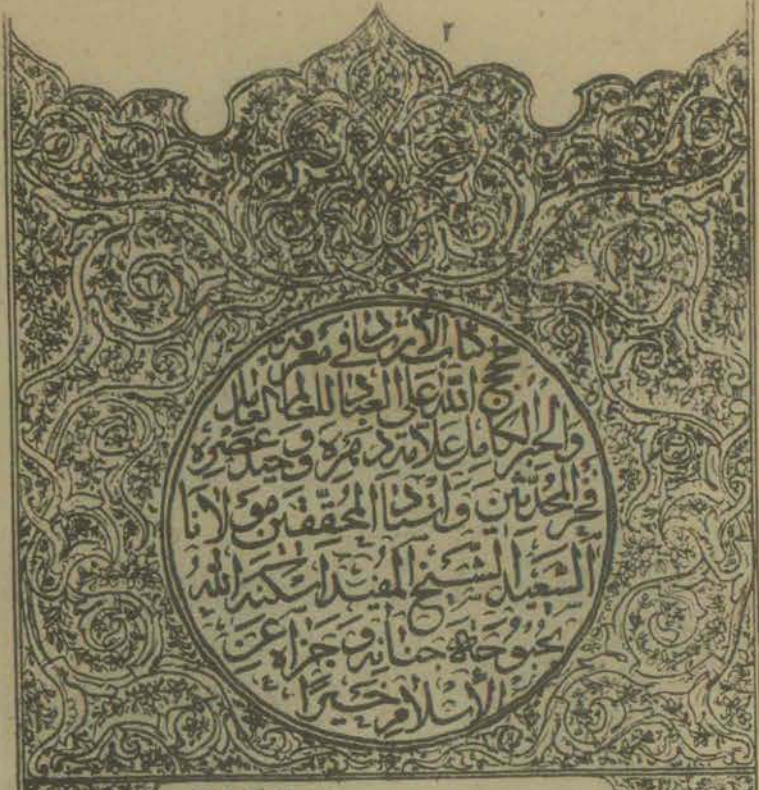 ٢
كتاب الإرشاد في معرفة
حجج الله على العباد للعالم العامل
والحبر الكامل علامة دهره وحيد عصره
فخر المحدثين وأستاد المحققين مولانا
السعيد الشيخ المفيد أسكنه الله
بحبوحة جنانه وجزاه عن
الإسلام خيرا